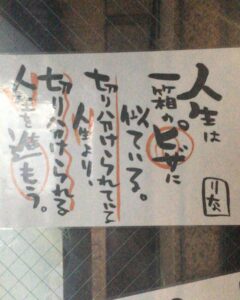 人生は
一箱のピザに
似ている。
切り分けられている
人生より、
切り分けられる
人生を進もう。
りな